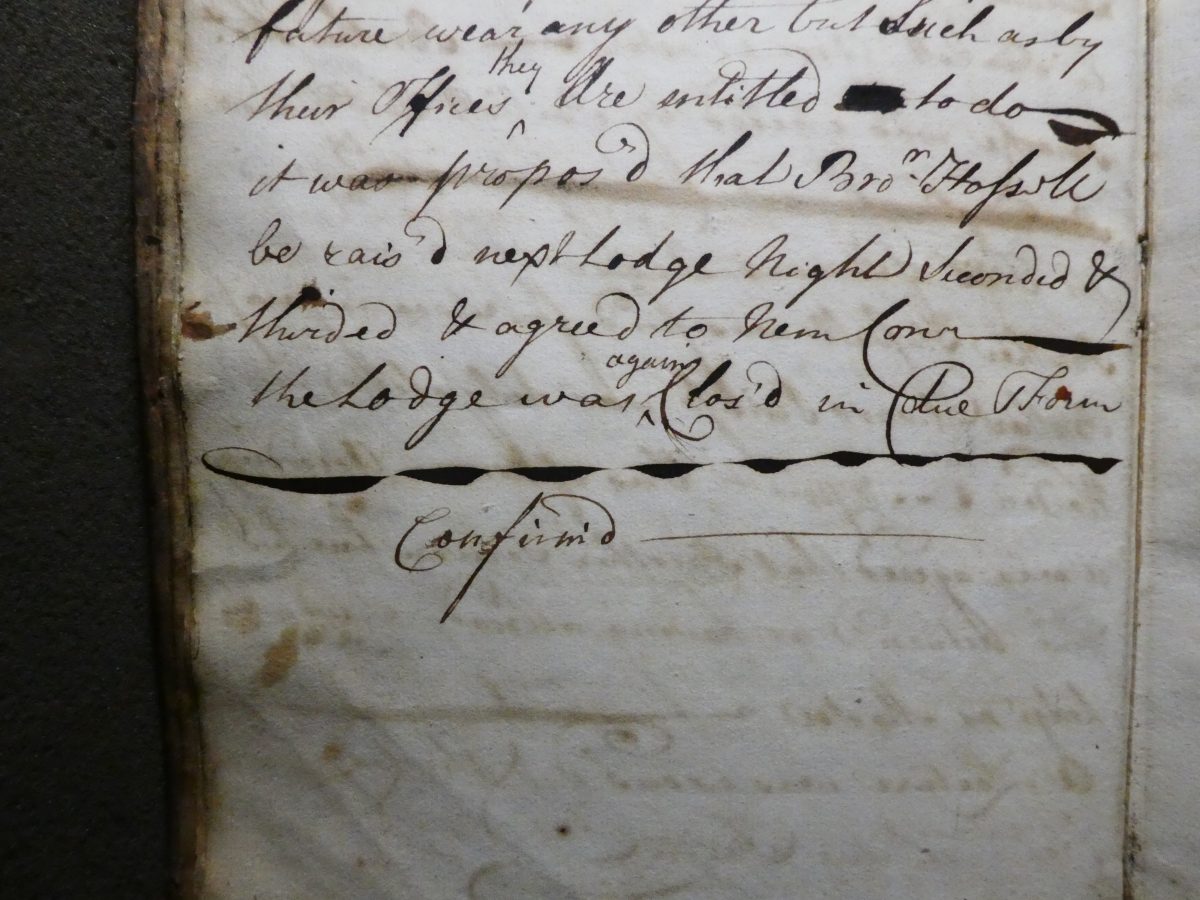 future wear any other but Such as by
their Offices they Are entitled to do
it was propos'd that Bror. Hassell
be rais'd next Lodge Night Seconded &
thirded & agreed to Nem Con
the Lodge was again Clos'd in Due Form
Confirm'd